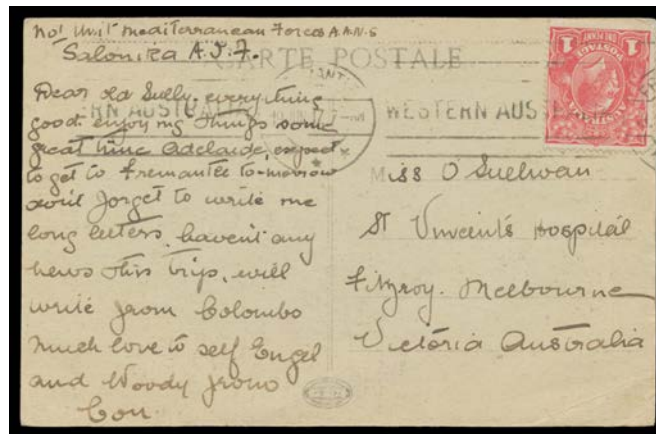 No 1 Unit Mediterranean Forces A.A.N.S
Salonika A.I.F.
CARTE POSTALE
Dear old Sully, everything
good enjoying things some
great time Adelaide, expect
to get to Fremantle to-morrow
don't forget to write me
long letters, haven't any
news this trip, will
write from Colombo
much love to self Engel
and Woody from
Con
WESTERN AUS
Miss O'Sullivan
St Vincent's Hospital
Fitzroy. Melbourne
Victoria Australia